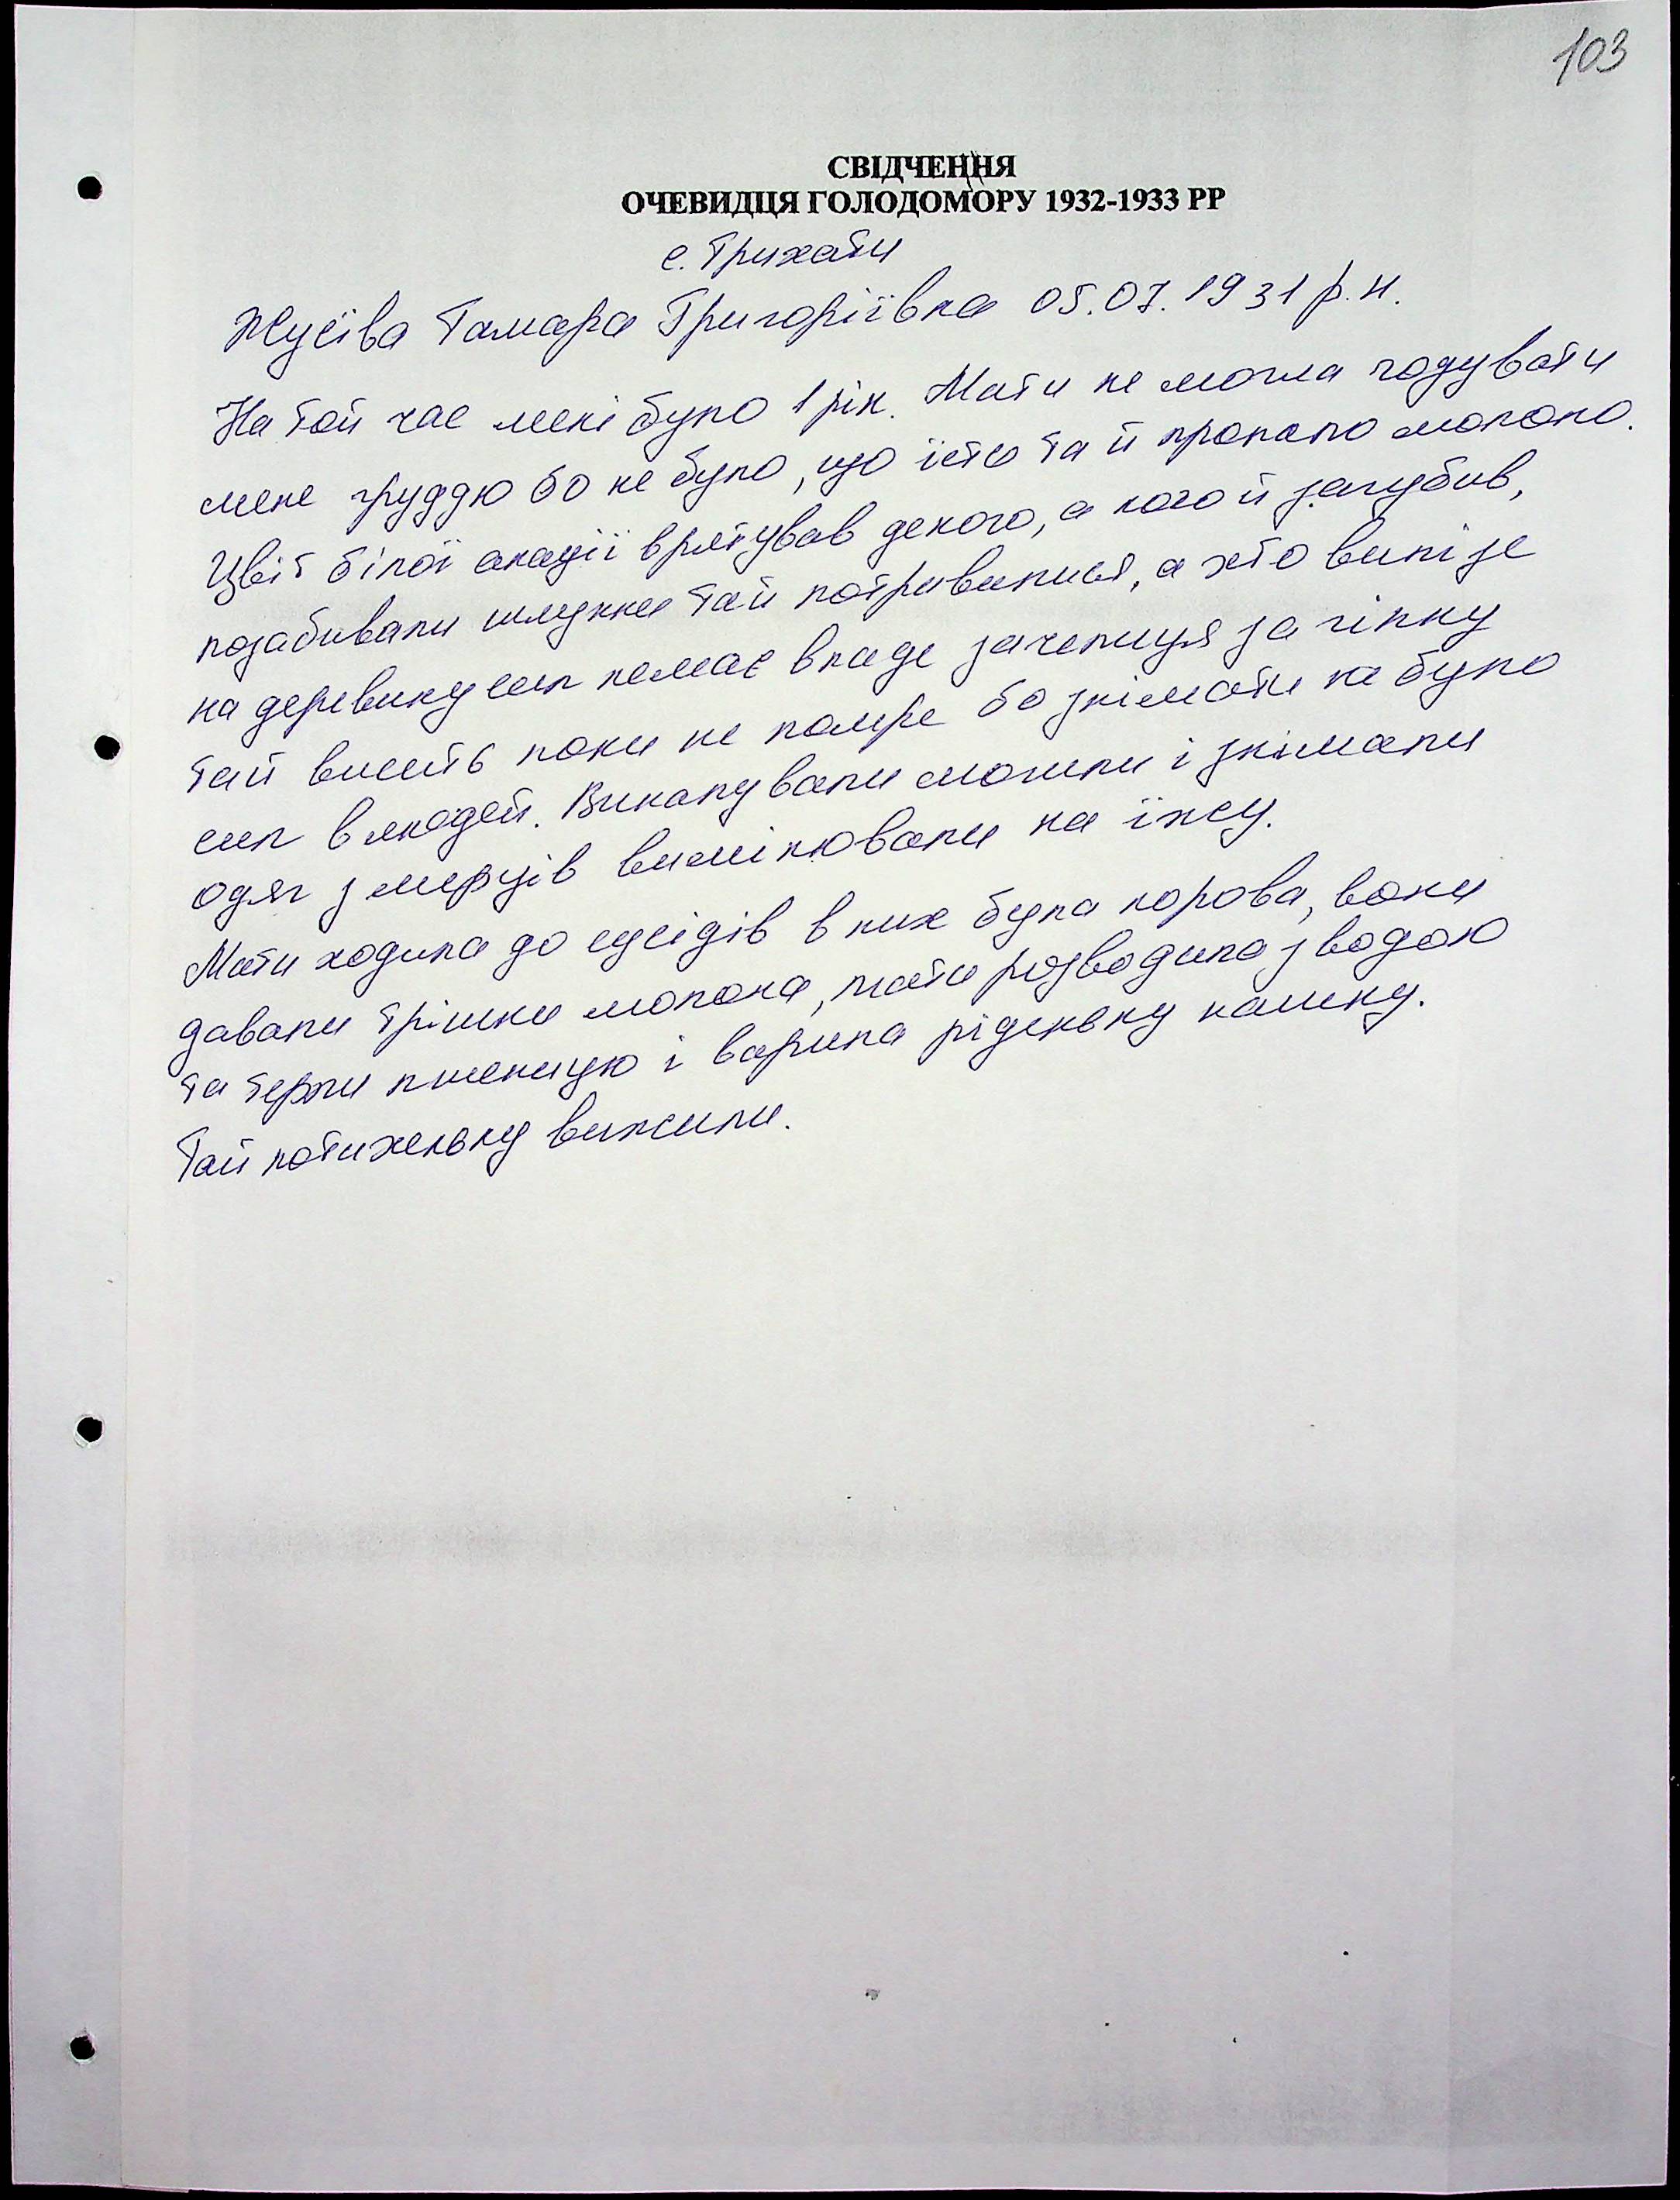 103
СВІДЧЕННЯ
ОЧЕВИДЦЯ ГОЛОДОМОРУ 1932-1933 РР
с. Трихати
Жусіва Тамара Григоріївна 05.07.1931 р.н.
На той час мені було 1 рік. Мати не могла годувати
мене груддю бо не було, що їсти та й пропало молоко.
Цвіт білої акації врятував декого, а кого й загубив,
позабивали шлунки тай потруїлися, а хто вилізе
на деревину сил немає впаде зачепиця за гілку
тай висить поки не помре бо знімати не було
сил в людей. Викапували могили і знімали
одяг з мерців вимінювали на їжу.
Мати ходила до сусідів в них була корова, вони
давали трішки молока, мати розводила з водою
та терли пшеницю і варила ріденьку кашку.
Тай потихеньку вижили.